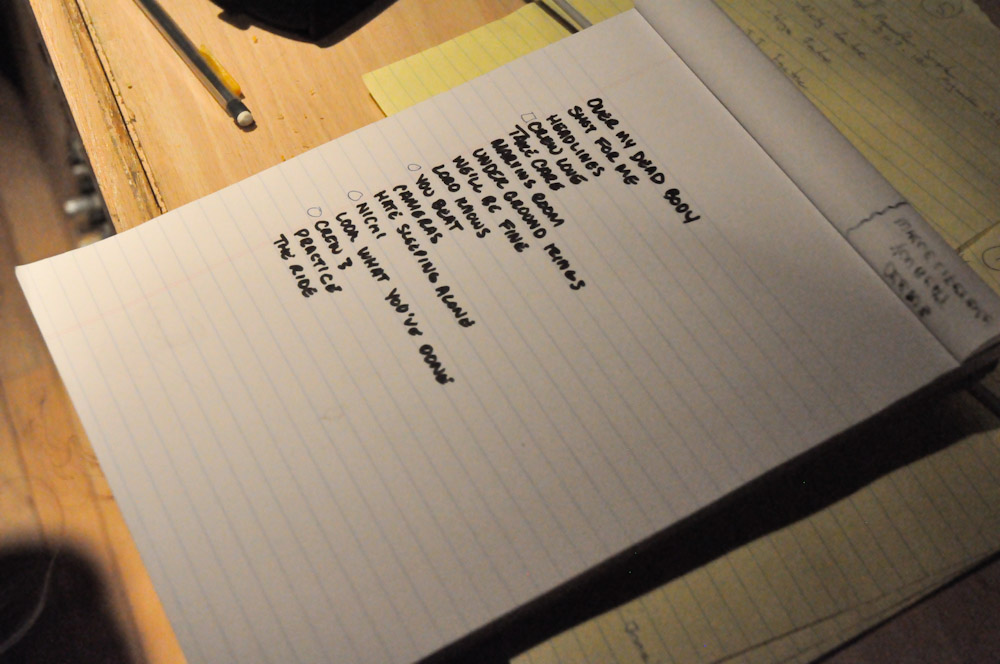 OVER MY DEAD BODY
SHOT FOR ME
HEADLINES
CREW LOVE
TAKE CARE
MARVINS ROOM
UNDER GROUND KINGS
WE'LL BE FINE
LORD KNOWS
YOU BEAT
CAMERAS
HATE SLEEPING ALONE
NICKI
LOOK WHAT YOU'VE DONE
CREW 3
PRACTICE
THE RIDE